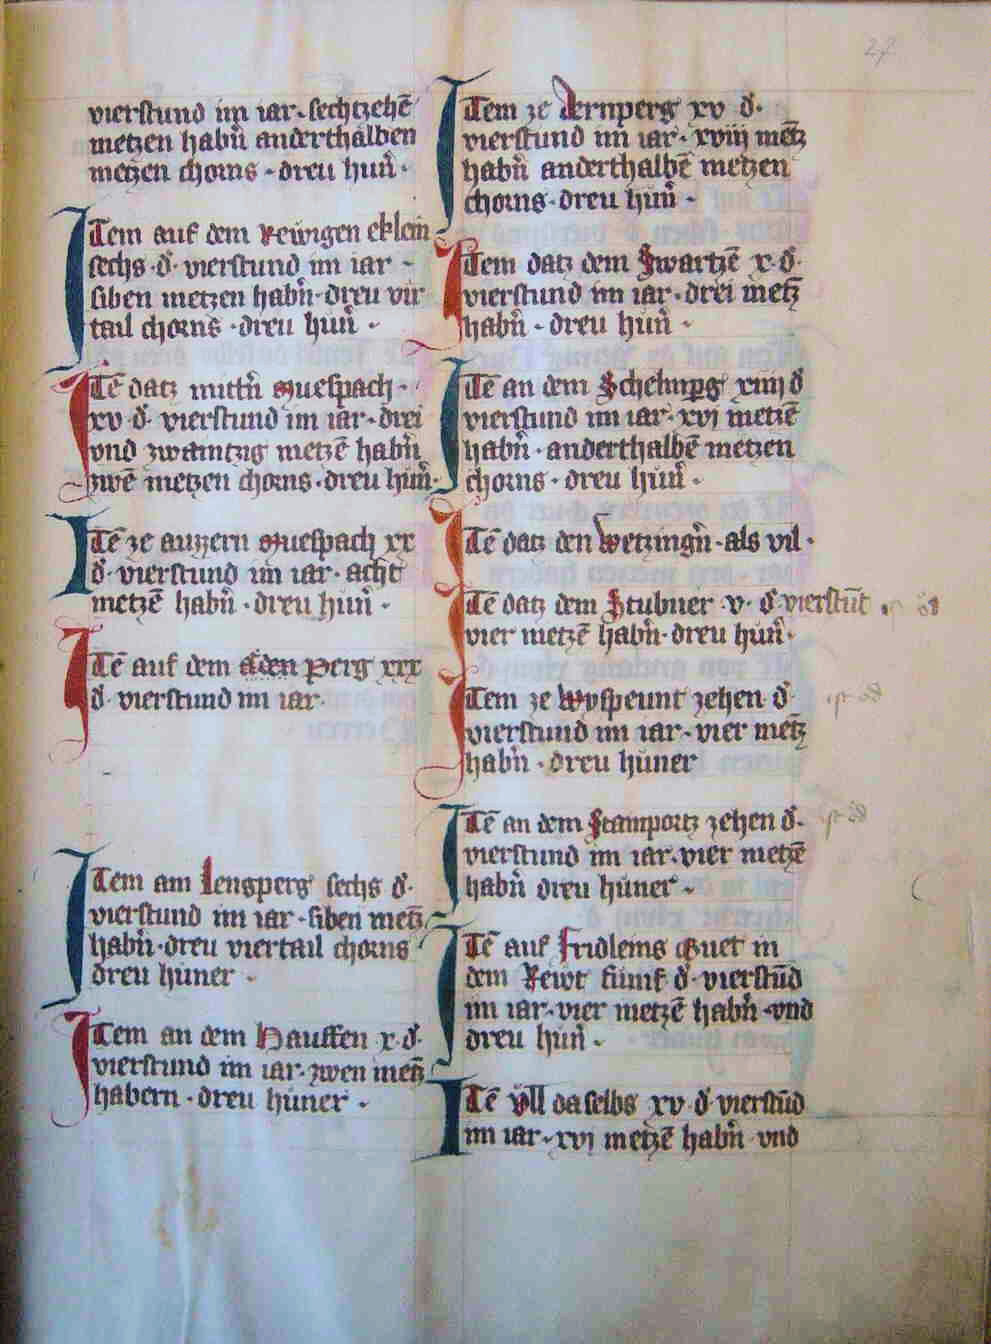 27
vierstund im iar · sechtzehē
metzen habn̄ anderthalben
metzen chorns · dreu hun̄ ·
Item auf dem Rewtgen eklein
sechs · d · vierstund im iar ·
siben metzen habn̄ · dreu vir
tail chorns · dreu hun̄ ·
Itē datz mittn̄ Muespach ·
xv · d · vierstund im iar · drei
vnd zwaintzig metzē habn̄
zwē metzen chorns · dreu hun̄ ·
Itē ze auzzern Muespach xx
d · vierstund im iar · acht
metzē habn̄ · dreu hun̄ ·
Itē auf dem Perg xxx
d · vierstund im iar ·
Item am Lengperg sechs d ·
vierstund im iar · siben metz̄
habn̄ · dreu viertail chorns
dreu hůner ·
Item an dem Hauffen x · d ·
vierstund im iar · zwen metz̄
habern · dreu hůner ·
Item ze Aernperg xv d ·
vierstund im iar · xviij metz̄
habn̄ anderthalbē metzen
chorns · dreu hůn̄ ·
Item datz dem Swartzē x · d ·
vierstund im iar · drei metz̄
habn̄ · dreu hun̄ ·
Itē an dem Schelnꝑg xiiij d
vierstund im iar · xvj metzē
habn̄ · anderthalbē metzen
chorns · dreu hůn̄ ·
Itē datz den Wetzingn̄ · als vil ·
Itē datz dem Stubner · v · d · vierstūt ·
vier metzē habn̄ · dreu hun̄ ·
Item ze Wyspeunt zehen d ·
vierstund im iar · vier metz̄
habn̄ · dreu hůner
Itē an dem Stainportz zehen d ·
vierstund im iar · vier metzē
habn̄ dreu hůner ·
Itē auf Fridleins Guet in
dem Rewt fůmf d · vierstūd
im iar · vier metzē habn̄ · vnd
dreu hůn̄ ·
Itē Ůll daselbs xv · d · vierstūd
im iar · xvj metzē habn̄ · vnd